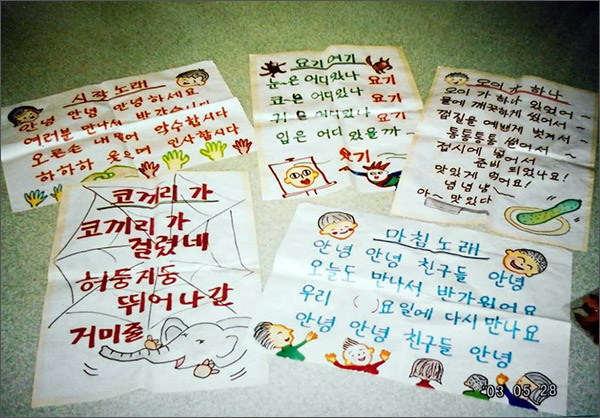 시작 노래
안녕 안녕 안녕하세요
여러분 만나서 반갑습니다
오른손 내밀어 악수합시다
하하하 웃으며 인사합시다
요기 여기
눈은 어디있나 요기
코은 어디있나 요기
귀은 어디있나 요기
입은 어디 있을까~
요기
오이가 하나
오이가 하나 있었어~
물에 깨끗하게 씻어서~
껍질을 예쁘게 벗겨서~
통통통통 썰어서~
접시에 담아서
준비 되었나요!
맛있게 먹어요!
냠냠냠~
아~ 맛있다
코끼리 가
코끼리 가
걸렸네
허둥지둥
뛰어 나갈
거미줄
마침 노래
안녕 안녕 친구들 안녕
오늘도 만나서 반가웠어요
우리 ( )요일에 다시 만나요
안녕 안녕 친구들 안녕
03 05 28